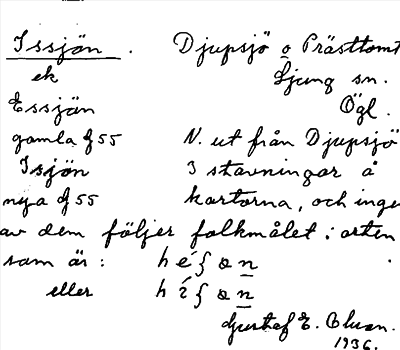 Issjön. Djupsjö o Prästtomt
ek Ljung sn.
Essjön Ögl.
gamla G 55 N. ut från Djupsjö
Isjön 3 stavningar å
nya G 55 kartorna, och inge
av dem följer folkmålet i orten
som är:
eller
Gustaf E.
1936.